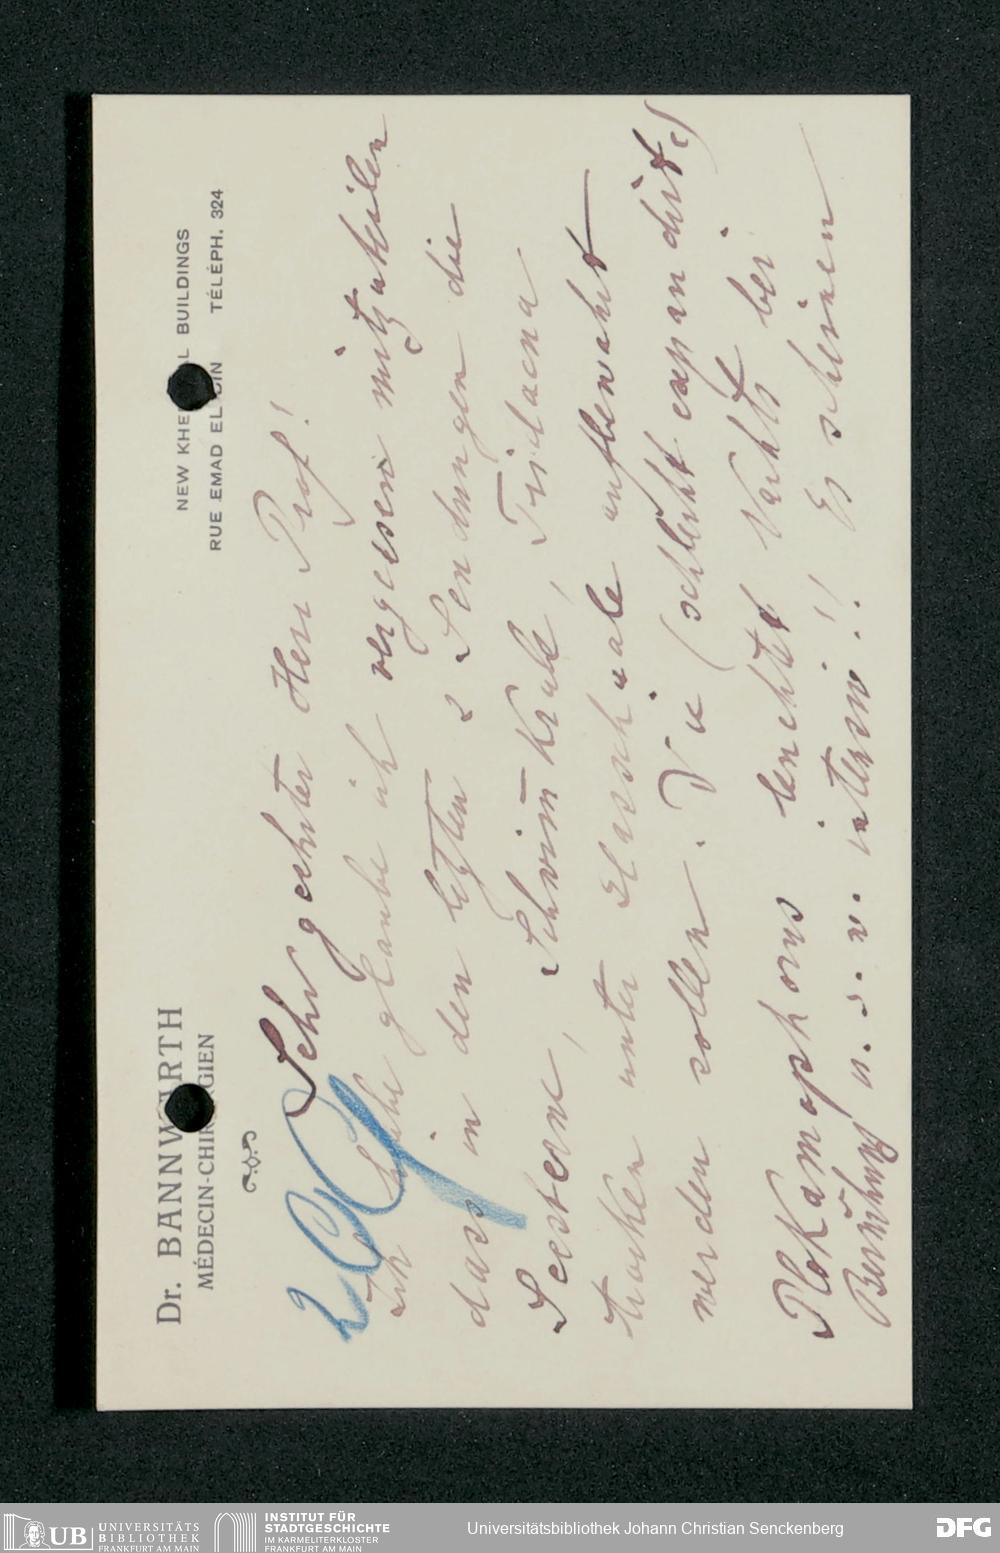 Dr. BANNWARTH
MÉDECIN-CHIRURGIEN
NEW KHE L BUILDINGS
RUE EMAD EL DIN TÉLÉPH. 324
Sehr geehrter Herr Prof!
Ich habe glaube ich vergessen mitzuteilen
dass in den letzten 2 Sendungen die
Seesterne, Schwimmkrabe, Tridacna
trocken unter aufbewahrt
werden sollen. Die (schlecht expandirte)
Plokamophorus leuchtet Nachts bei
Berührung u. s. w. interess!! Es scheinen
UB UNIVERSITÄTS
BIBLIOTHEK
FRANKFURT AM MAIN
INSTITUT FÜR
STADTGESCHICHTE
IM KARMELITERKLOSTER
FRANKFURT AM MAIN
Universitätsbibliothek Johann Christian Senckenberg
DFG